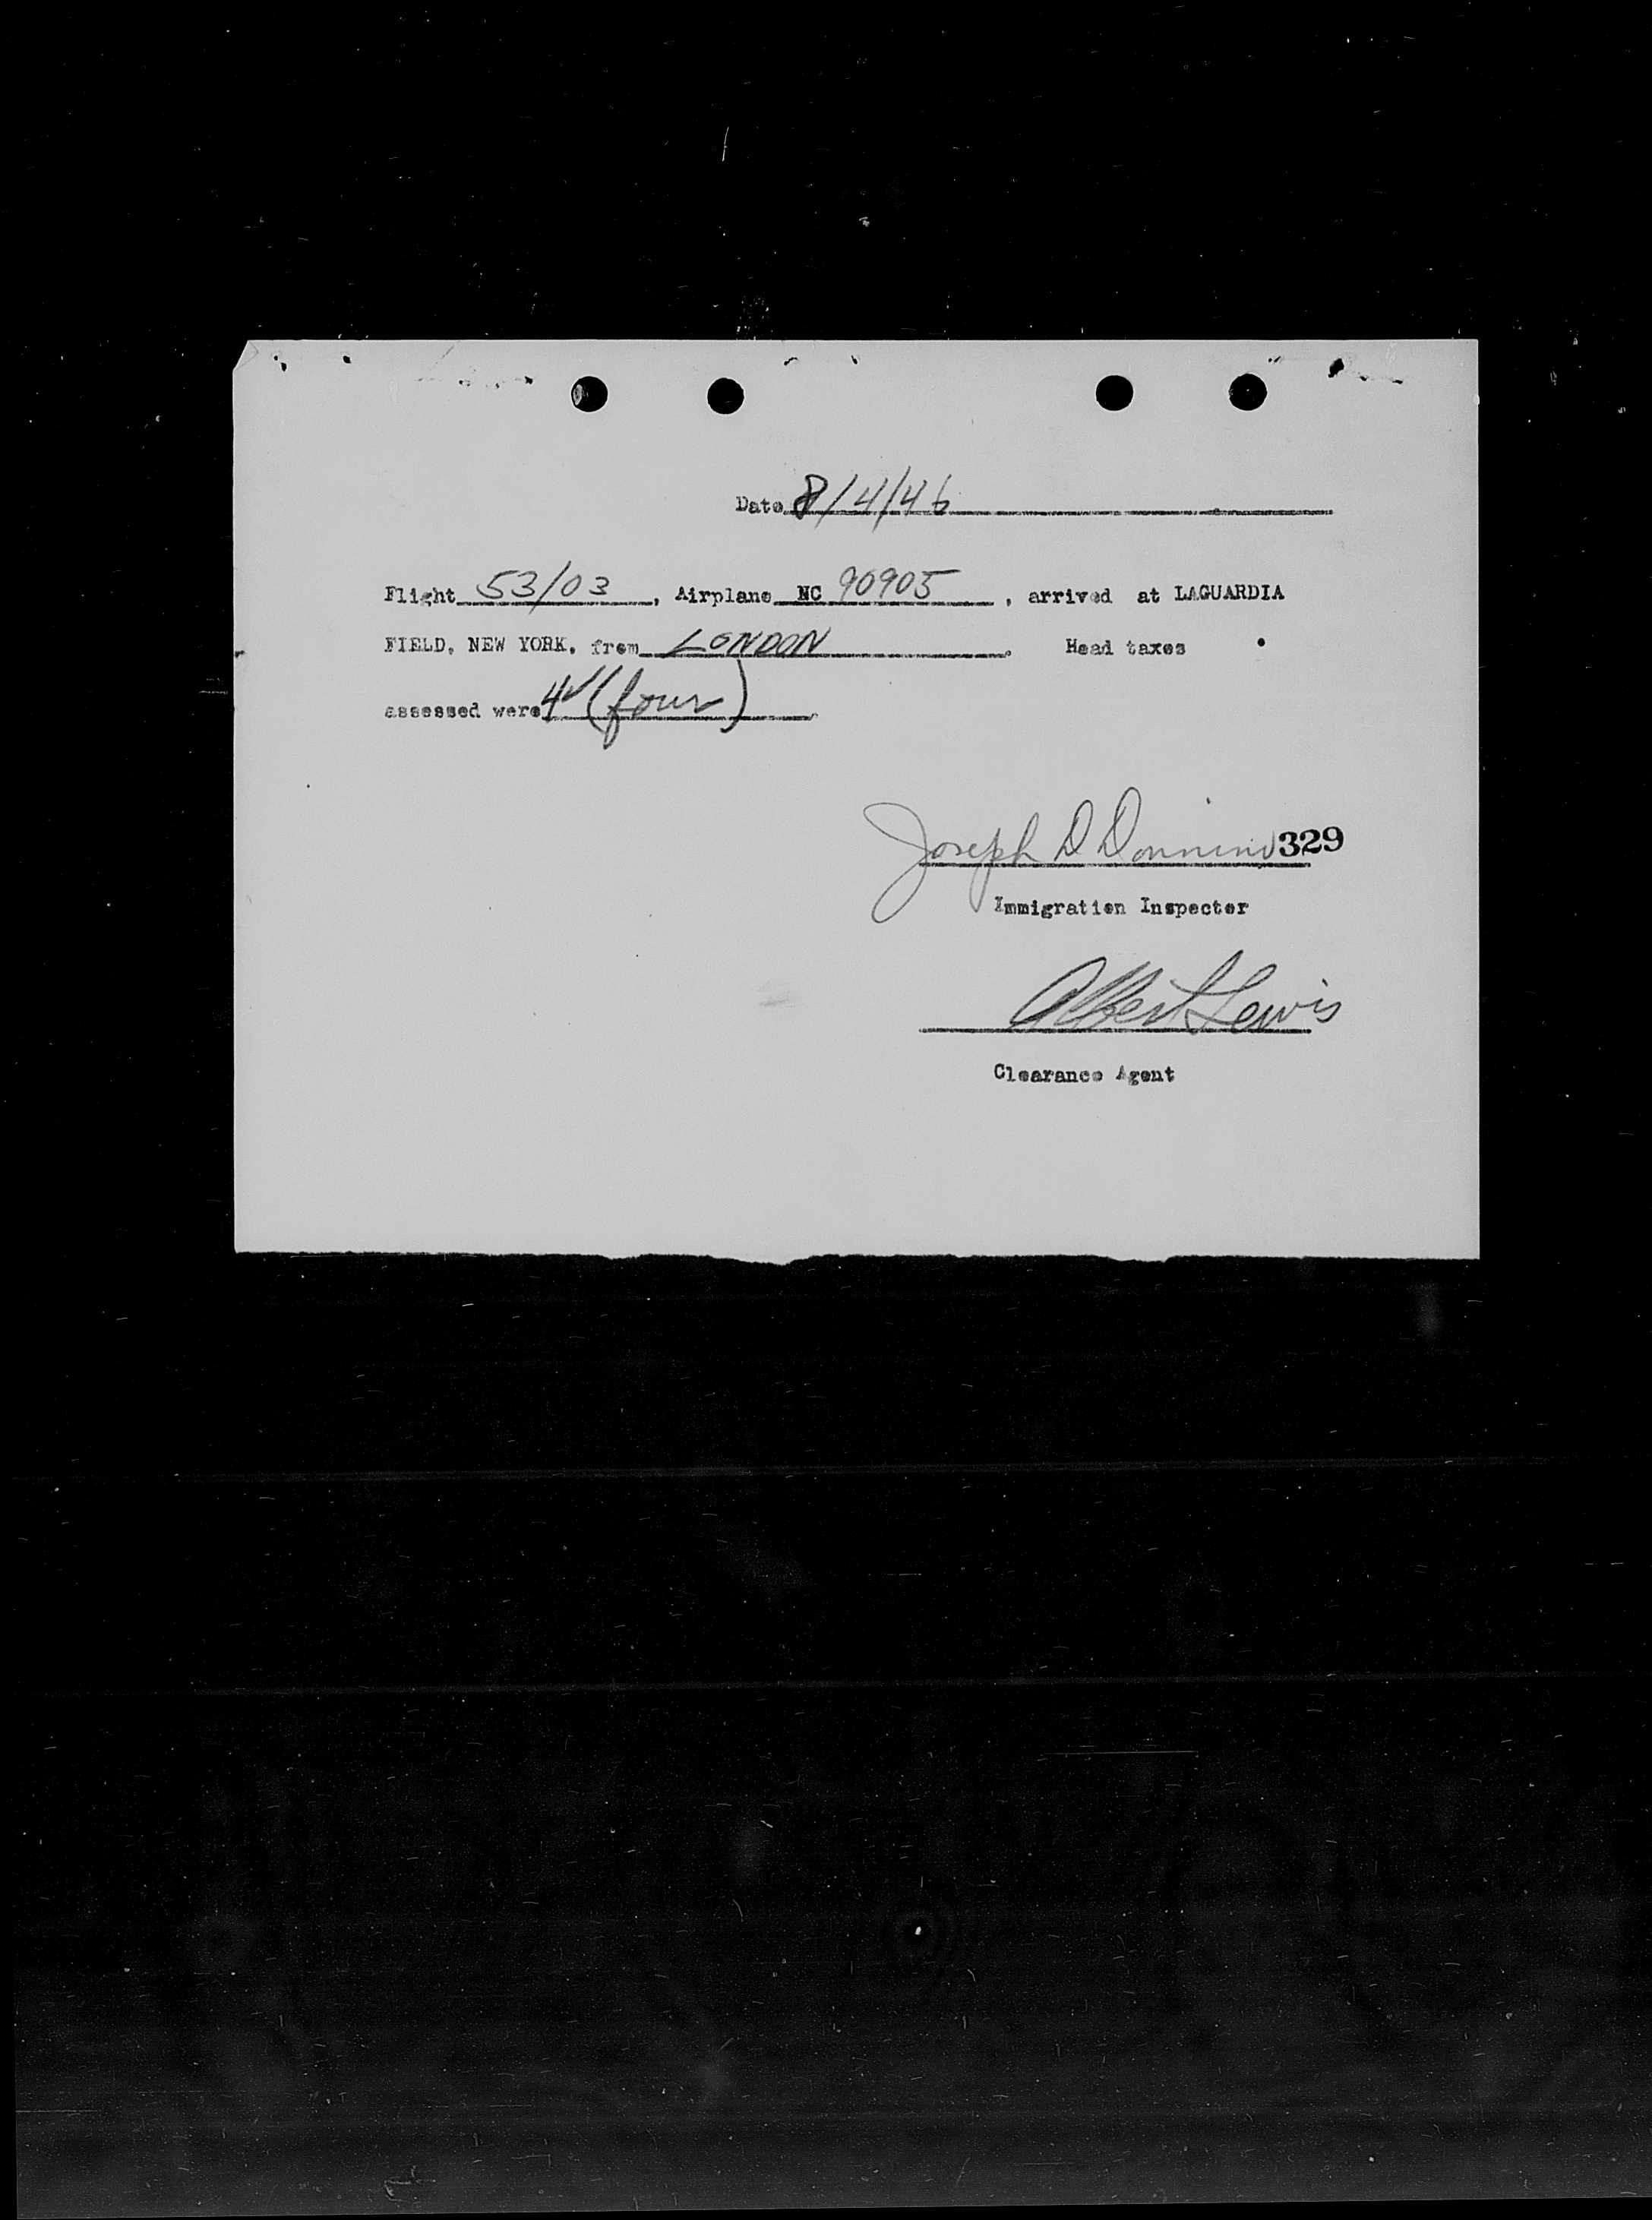 Date 8/4/46
Flight 53/03, Airplane NC 90905, arrived at LAGUARDIA
FIELD, NEW YORK, from LONDON. Head taxes
assessed were 4✓ (four)
Joseph D Donnini 329
Immigration Inspector
Albert Lewis
Clearance Agent